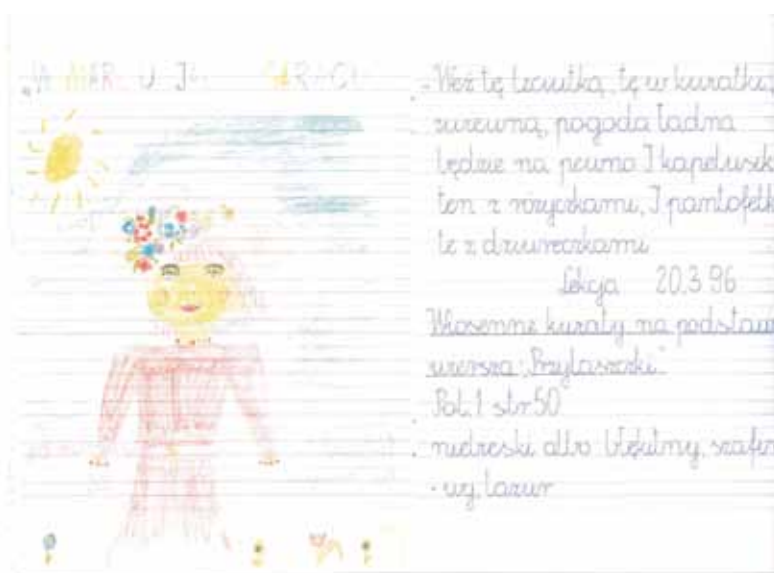 "W MAR U J
- Weź tę leciutką, tę w kwiatki,
zwiewną, pogoda ładna
będzie na pewno I kapelusik
ten z różyczkami, I pantofelk
te z dziureczkami
Lekcja 20.3 96
Wiosenne kwiaty na podstaw
wiersza „Przylaszczki"
Pol. 1 str 50
niebieski albo błękitny, szafir
lazur